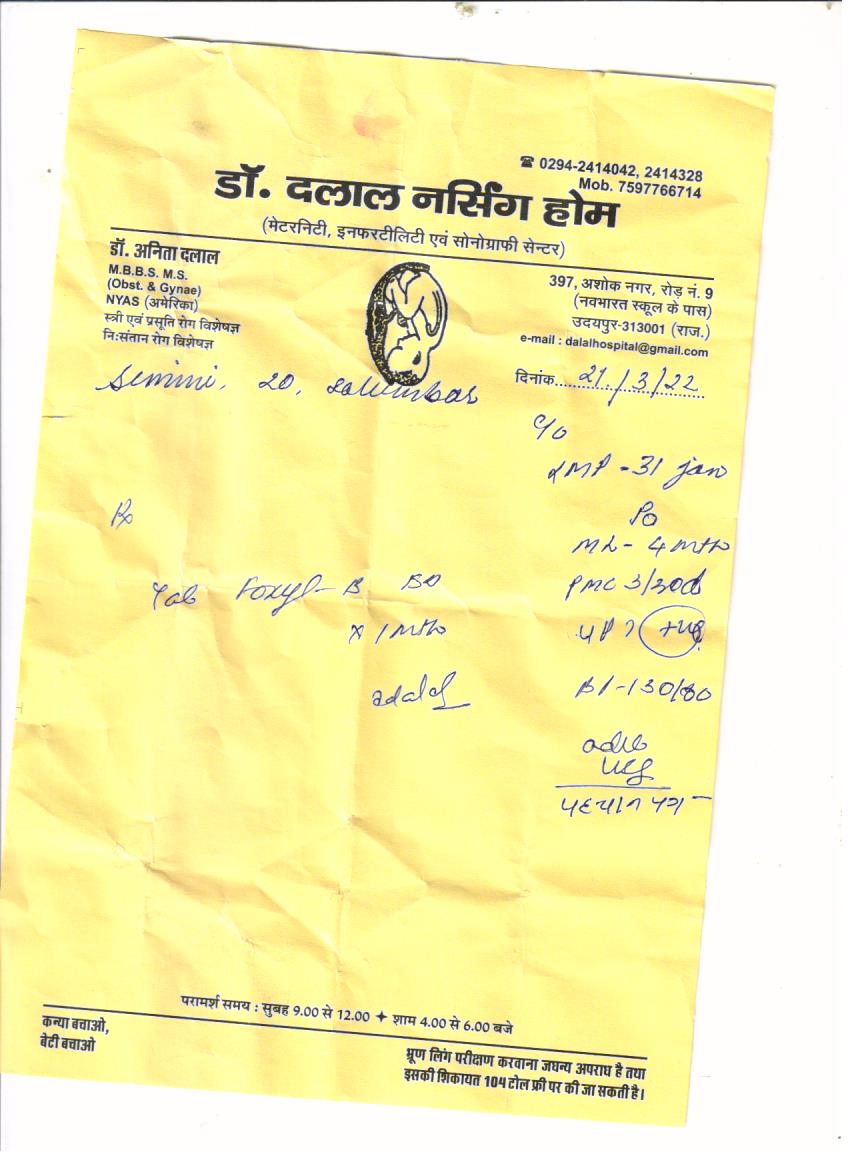 ☎ 0294-2414042, 2414328
Mob. 7597766714
डॉ. दलाल नर्सिंग होम
(मेटरनिटी, इनफरटीलिटी एवं सोनोग्राफी सेन्टर)
डॉ. अनिता दलाल
M.B.B.S. M.S.
(Obst. & Gynae)
NYAS (अमेरिका)
स्त्री एवं प्रसूति रोग विशेषज्ञ
नि:संतान रोग विशेषज्ञ
397, अशोक नगर, रोड़ नं. 9
(नवभारत स्कूल के पास)
उदयपुर-313001 (राज.)
e-mail : dalalhospital@gmail.com
दिनांक 21/3/22
20,
c/o
LMP - 31 Jan
Rx
Po
ML - 4 mths
Tab BD
PMC 3/30d
x 1 mth
UP? +ve
BP - 130/80
adv
USG
पहचान पत्र
परामर्श समय : सुबह 9.00 से 12.00 ✦ शाम 4.00 से 6.00 बजे
कन्या बचाओ,
बेटी बचाओ
भ्रूण लिंग परीक्षण करवाना जघन्य अपराध है तथा
इसकी शिकायत 104 टोल फ्री पर की जा सकती है।